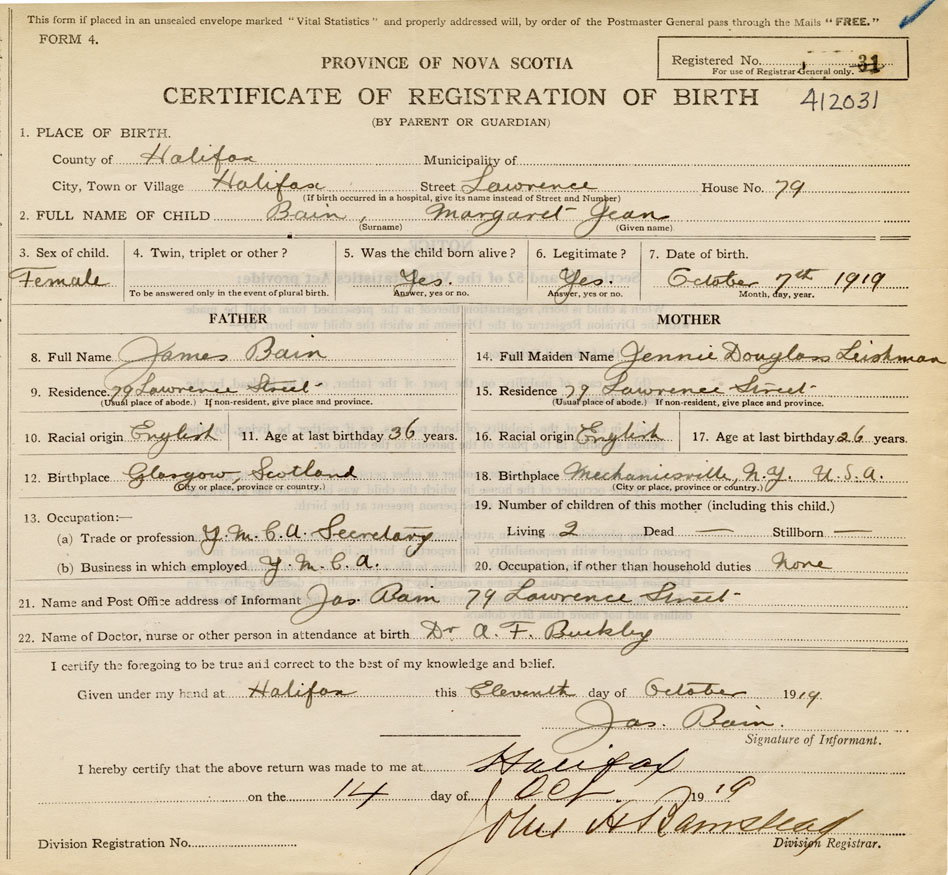 This form if placed in an unsealed envelope marked "Vital Statistics" and properly addressed will, by order of the Postmaster General pass through the Mails "FREE."
FORM 4.
Registered No. 31
For use of Registrar General only.
PROVINCE OF NOVA SCOTIA
CERTIFICATE OF REGISTRATION OF BIRTH 412031
(BY PARENT OR GUARDIAN)
1. PLACE OF BIRTH.
County of Halifax Municipality of
City, Town or Village Halifax Street Lawrence House No. 79
(If birth occurred in a hospital, give its name instead of Street and Number)
2. FULL NAME OF CHILD Bain, Margaret Jean
(Surname) (Given name)
3. Sex of child. 4. Twin, triplet or other? 5. Was the child born alive? 6. Legitimate? 7. Date of birth.
Female Yes. Yes. October 7th 1919
To be answered only in the event of plural birth. Answer, yes or no. Answer, yes or no. Month, day, year.
FATHER MOTHER
8. Full Name James Bain 14. Full Maiden Name Jennie Douglass Leishman
9. Residence. 79 Lawrence Street 15. Residence 79 Lawrence Street
(Usual place of abode.) If non-resident, give place and province. (Usual place of abode.) If non-resident, give place and province.
10. Racial origin English 11. Age at last birthday 36 years. 16. Racial origin English 17. Age at last birthday 26 years.
12. Birthplace Glasgow, Scotland 18. Birthplace Mechanicsville, N.Y. U.S.A.
(City or place, province or country.) (City or place, province or country.)
19. Number of children of this mother (including this child.)
13. Occupation:—
Living 2 Dead — Stillborn —
(a) Trade or profession Y.M.C.A. Secretary
(b) Business in which employed Y.M.C.A. 20. Occupation, if other than household duties None
21. Name and Post Office address of Informant Jas. Bain 79 Lawrence Street
22. Name of Doctor, nurse or other person in attendance at birth Dr A. F. Buckley
I certify the foregoing to be true and correct to the best of my knowledge and belief.
Given under my hand at Halifax this Eleventh day of October 1919.
Jas. Bain.
Signature of Informant.
I hereby certify that the above return was made to me at Halifax
on the 14 day of Oct. 1919
John A
Division Registrar No. Division Registrar.